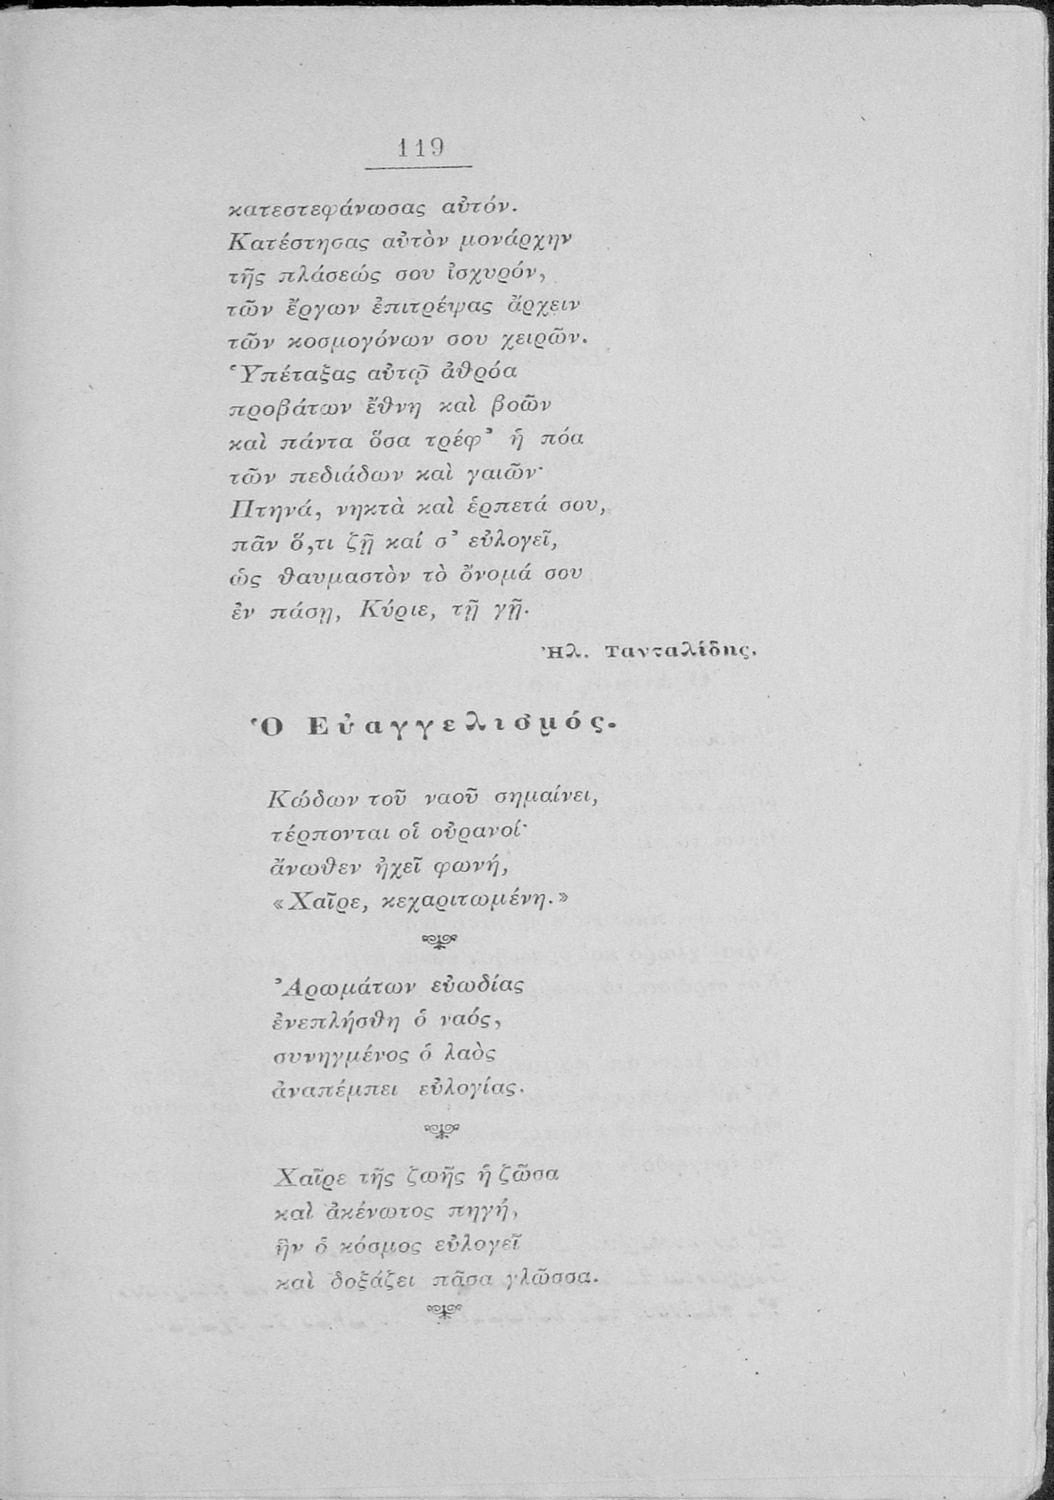 119
κατεστεφάνωσας αὐτόν.
Κατέστησας αὐτὸν μονάρχην
τῆς πλάσεώς σου ἰσχυρόν,
τῶν ἔργων ἐπιτρέψας ἄρχειν
τῶν κοσμογόνων σου χειρῶν.
Ὑπέταξας αὐτῷ ἀθρόα
προβάτων ἔθνη καὶ βοῶν
καὶ πάντα ὅσα τρέφ’ ἡ πόα
τῶν πεδιάδων καὶ γαιῶν·
Πτηνά, νηκτὰ καὶ ἑρπετά σου,
πᾶν ὅ,τι ζῇ καί σ’ εὐλογεῖ,
ὡς θαυμαστὸν τὸ ὄνομά σου
ἐν πάσῃ, Κύριε, τῇ γῇ.
Ἠλ. Τανταλίδης.
Ὁ Εὐαγγελισμός.
Κώδων τοῦ ναοῦ σημαίνει,
τέρπονται οἱ οὐρανοί·
ἄνωθεν ἠχεῖ φωνή,
«Χαῖρε, κεχαριτωμένη.»
Ἀρωμάτων εὐωδίας
ἐνεπλήσθη ὁ ναός,
συνηγμένος ὁ λαὸς
ἀναπέμπει εὐλογίας.
Χαῖρε τῆς ζωῆς ἡ ζῶσα
καὶ ἀκένωτος πηγή,
ἣν ὁ κόσμος εὐλογεῖ
καὶ δοξάζει πᾶσα γλῶσσα.